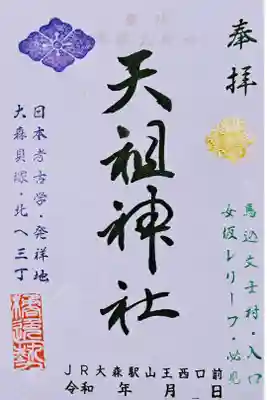 奉拝
馬込文士村・入口
女坂レリーフ・必見
天祖神社
日本考古学・発祥地
大森貝塚・北へ三丁
JR大森駅山王西口前
令和 年 月 日